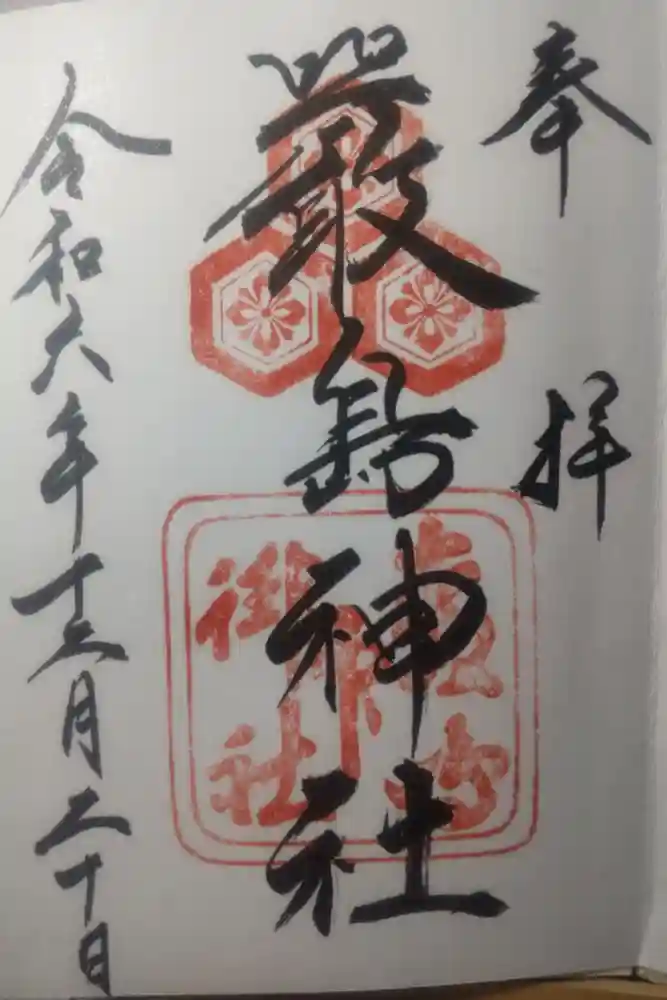 奉拝
嚴島神社
令和六年十二月二十日
嚴島
御社